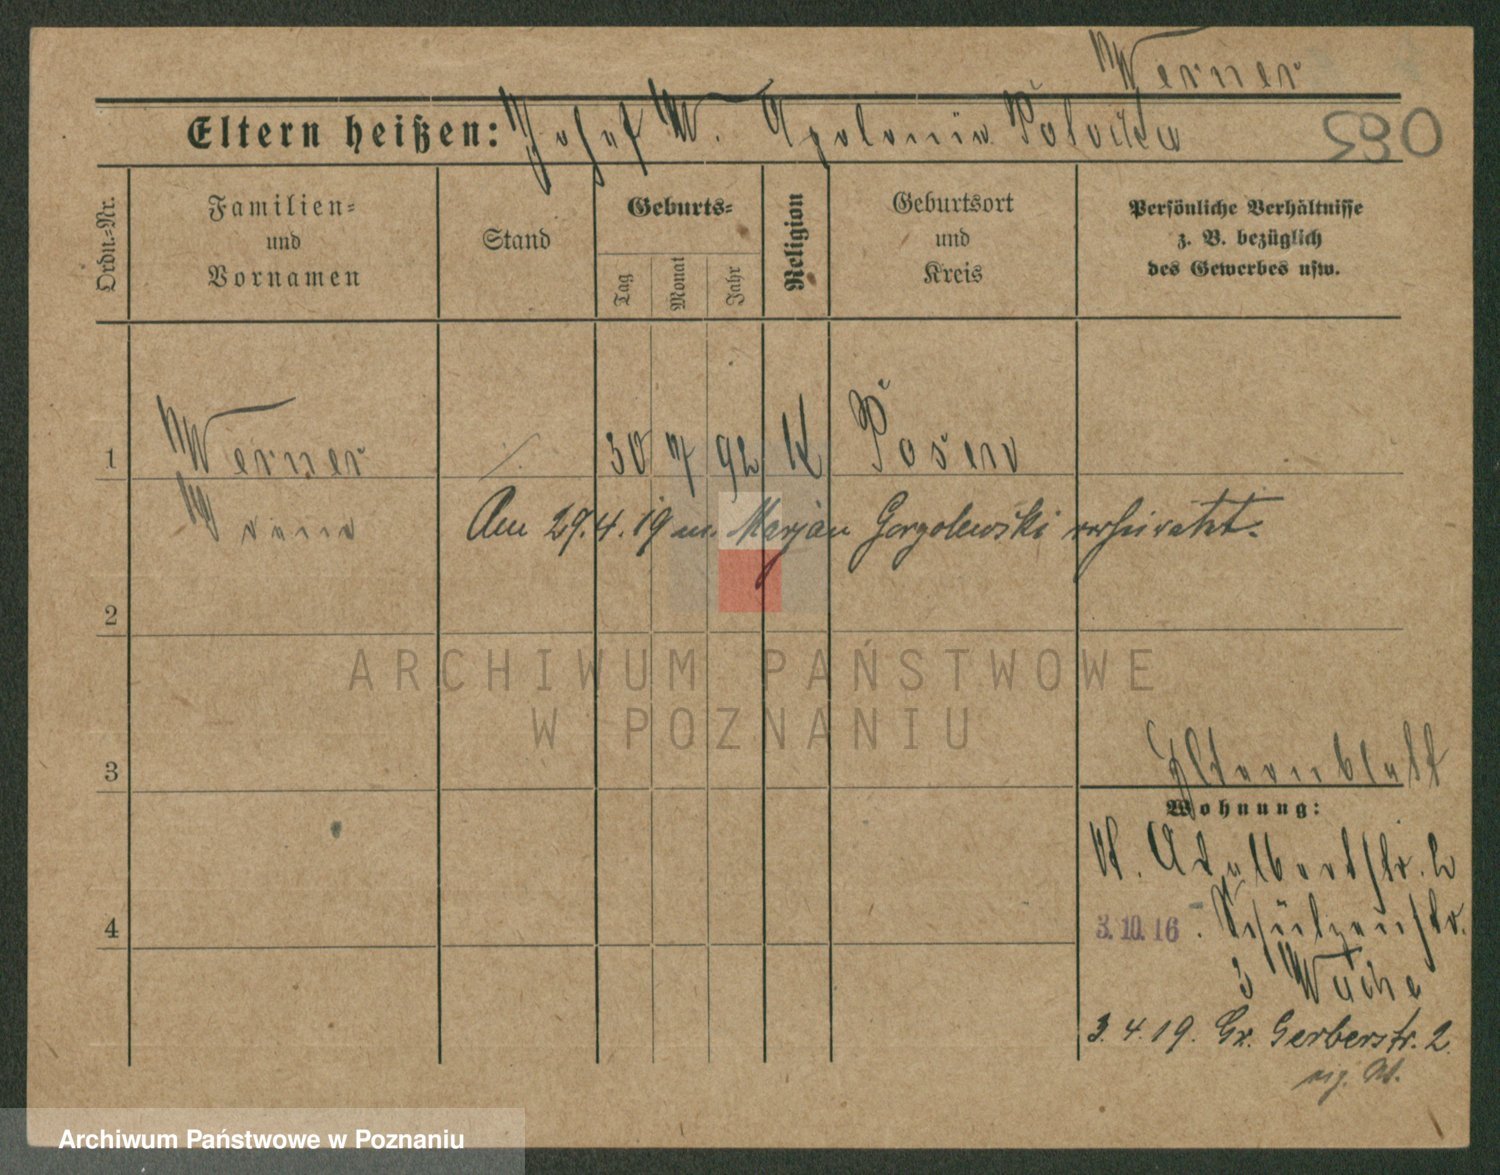 Werner
Eltern heißen: Josef W. Apolonia
590
Ordn.-Nr.
Familien-
und
Vornamen
Stand
Geburts-
Tag
Monat
Jahr
Religion
Geburtsort
und
Kreis
Persönliche Verhältnisse
z. B. bezüglich
des Gewerbes usw.
1 Werner 30 7 92 K Posen
Am 29.4.19 m. Marjan Gorzolewski verheiratet.
2
ARCHIWUM PAŃSTWOWE
W POZNANIU
3
Elternblatt
Wohnung:
W. Adalbertstr. 2
4
3.10.16 Schützenstr.
3 Wache
3.4.19. Gr. Gerberstr. 2.
Archiwum Państwowe w Poznaniu